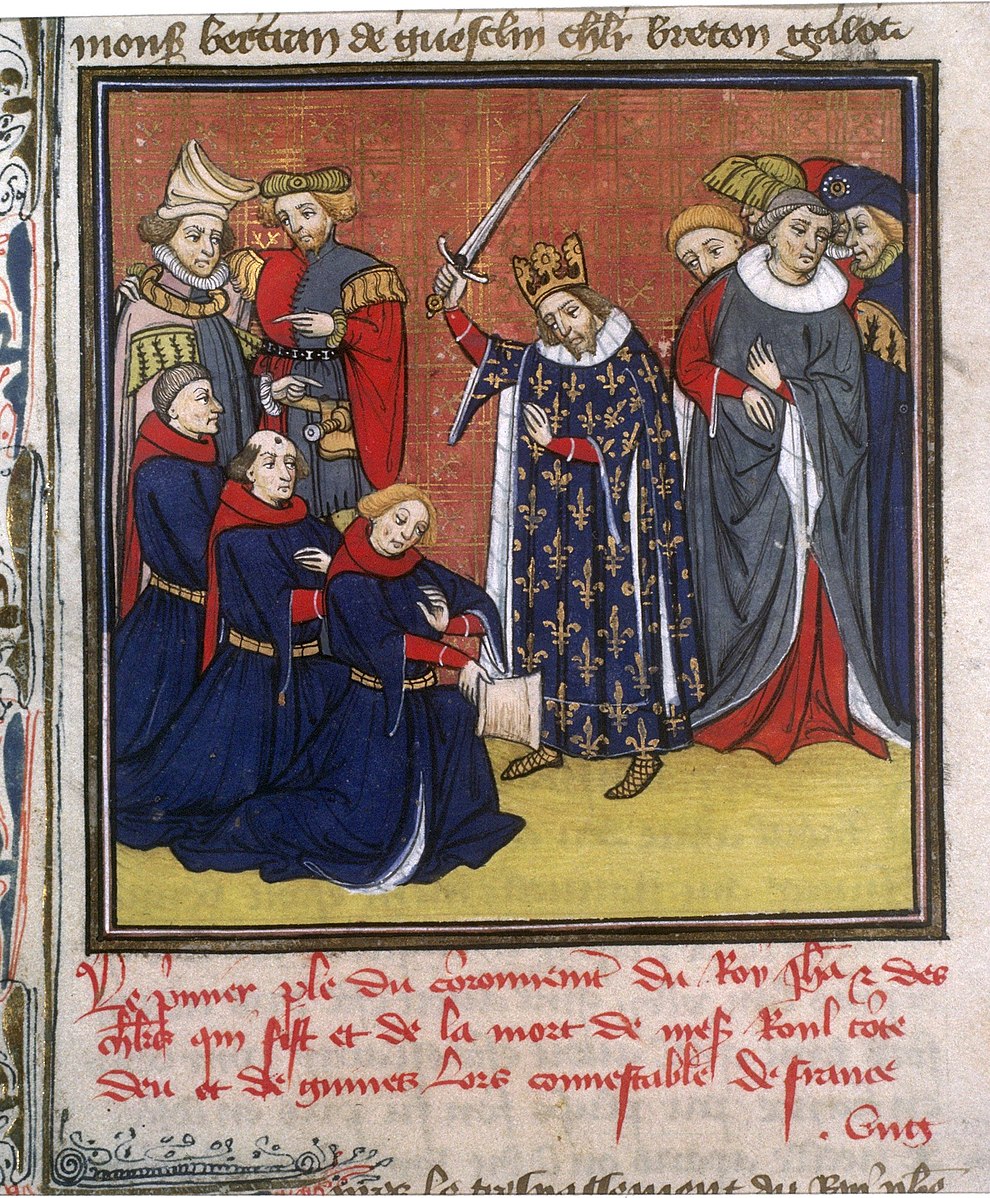 monsr bertran de guesclin chlr breton
Le pmier ple du coronnemt du Roy Jhan z des
chlrs qui fist et de la mort de mess Raoul conte
deu et de guines lors connestable de france
le trespassement du Roy phe